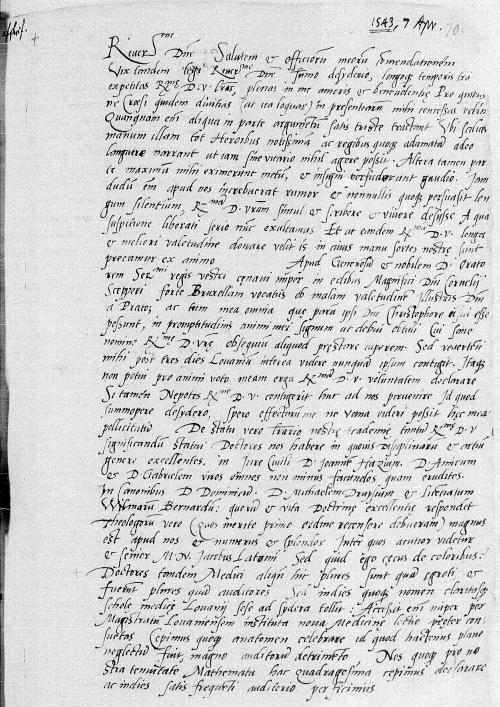 1543, 7 Apr. 70
Rever me Dne Salutem et officiorū meorū cōmendationem
Vix tandem legi Rever me Dne summo desyderio, longoq temporis tra
expetitas Rme D. V. lras, plenas in me amoris et benevolentie Pro quibus
ne Croesi quidem divitias (ut ita loquar) in presentiarū mihi
Quanquam eni aliqua in parte argumentū satis triste tractent Ubi scilicet
manum illam tot Heroibus notissimā ac regibus quoq adamatā adeo
languere narrant ut iam sine vicario nihil agere possit. Altera tamen par
te maximū mihi exemerunt metū, et insigni gaudio. Iam
dudū eni apud nos increbuerat rumor et nonnullis quoq persuasit lon
gum silentium, Rmam D. vram simul et scribere et vivere desiisse A qua
suspitione liberati serio nūc exultamus Et ut eamdem Rmā D. V. longeq
et meliori valetudine donare velit is in cuius manu sortes nostre sunt
precamur ex animo Apud Generosū et nobilem D. Orato
rem Sermi regis vestri cenavi nuper in edibus Magnifici Dni Cornelij
Scepperi forte Bruxellam vocatus ob malam valetudinē Illustris Dni
a Prato; ac tum mea omnia que parū ipsi Dno Christophoro usui esse
possunt, in promptitudinis animi mei signum ut debui obtuli. Cui sane
nomine Rme D. Vre obsequiū aliquod prestare cuperem. Sed revertenti
mihi post tres dies Lovaniū interea videre nunquā ipsum contigit. Itaq
non potui pro animi voto meam erga Rmā D. V. voluntatem declarare
Si tamen Nepotes Rme D. V. contigerit huc ad nos pervenire Id quod
summopere desydero, spero effecturū me ne vana videri possit hec mea
pollicitatio De statu vero nostre Academie tantū Rme D. V
significandū statui Doctores nos habere in quovis disciplinarū et artiū
genere excellentes. in Iure Civili D. Ioannē Hazium. D. Amicum
et D. Gabrielem viros omnes non minus facundos quam eruditos.
In Canonibus D. Dominicū. D. Michaelem Drusium et Licentiatum
Wilmarū Bernardū: quorū et vita Doctrine excellentie respondet
Theologorū vero (Quos merito primo ordine recensere debueram) magnus
est apud nos et numerus et splendor Inter quos acutior videtur
et senior M. N. Iacobus Latomi Sed quid ego cecus de coloribus?
Doctores tandem Medici aliqui hic plures sunt quā egroti, et
fuerūt plures quā auditores Sed indies quoq nomen claritasq
schole medice Lovanij sese ad sydera tollit: Accessit eni nuper per
Magistratū Lovaniensem instituta nova Medicine lectio preter con
suetas Cepimus quoq anatomen celebrare id quod hactenus plane
neglectū fuit, magno auditorū detrimēto Nos quoq pro no
stra tenuitate Mathemata hac quadragesima cepimus declarare
ac indies satis frequēti auditorio perficimus